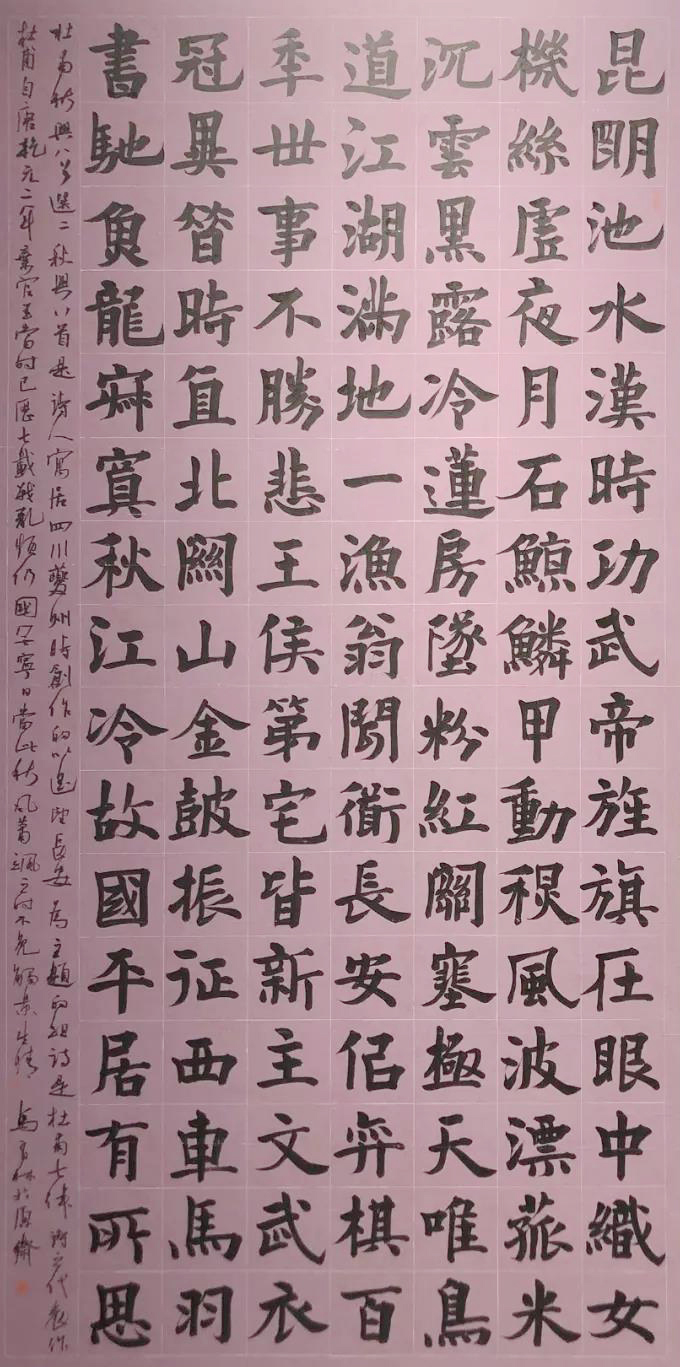 昆明池水漢時功武帝旌旗在眼中織女
機絲虛夜月石鯨鱗甲動秋風波漂菰米
沉雲黑露冷蓮房墜粉紅關塞極天唯鳥
道江湖滿地一漁翁聞衜長安佀弈棋百
秊世事不勝悲王侯第宅皆新主文武衣
冠異昔時直北關山金鼓振征西車馬羽
書馳魚龍寂寞秋江冷故國平居有所思
杜甫秋興八首選二秋興八首是詩人寓居四川夔州時創作的以遥望長安為主題的組詩是杜甫七律詩之代表作
杜甫自唐乾元二年棄官至當時已歷七載戰亂頻仍國無寧日當此秋風蕭颯之時不免觸景生情